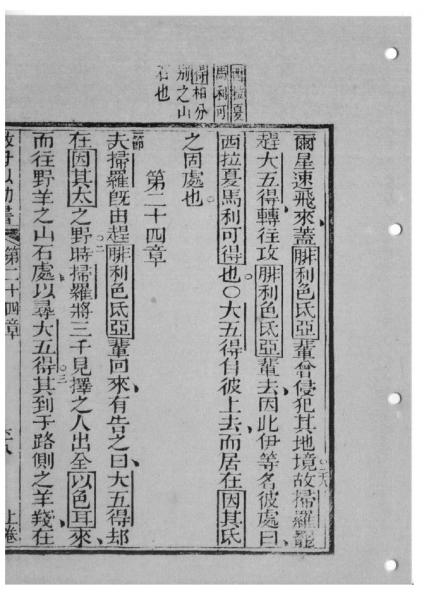 西拉夏
馬利可
得相分
別之山
石也
爾星速飛來蓋腓利色氏亞輩曾侵犯其地境故掃羅罷
趕大五得轉往攻腓利色氏亞輩去因此伊等名彼處曰
西拉夏馬利可得也○大五得自彼上去而居在因其氏
之固處也
第二十四章
夫掃羅既由趕腓利色氏亞輩回來有告之曰大五得却
在因其太之野時掃羅將三千見擇之人出全以色耳來
而往野羊之山石處以尋大五得其到于路側之羊殘在
第二十四章
上卷